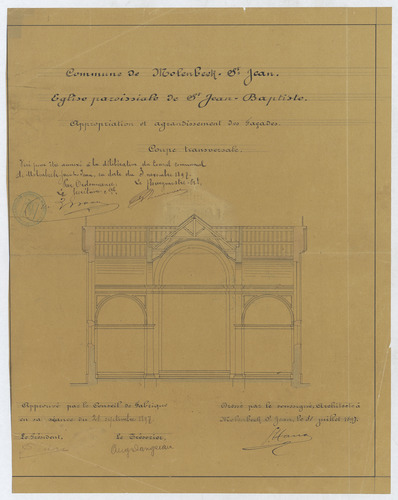 Commune de Molenbeek-St Jean.
Eglise paroissiale de St Jean-Baptiste.
Appropriation et agrandissement des façades.
Coupe transversale.
Vu pour être annexé à la délibération du Conseil communal
de Molenbeek-Saint-Jean en date du 3 novembre 1897.
Par Ordonnance:
Le Secrétaire,
Le Bourgmestre,
Approuvé par le Conseil de fabrique
en sa séance du 26 septembre 1897
Le Président,
Le Trésorier,
Dressé par le soussigné, Architecte à
Molenbeek St Jean, le 10 juillet 1897.